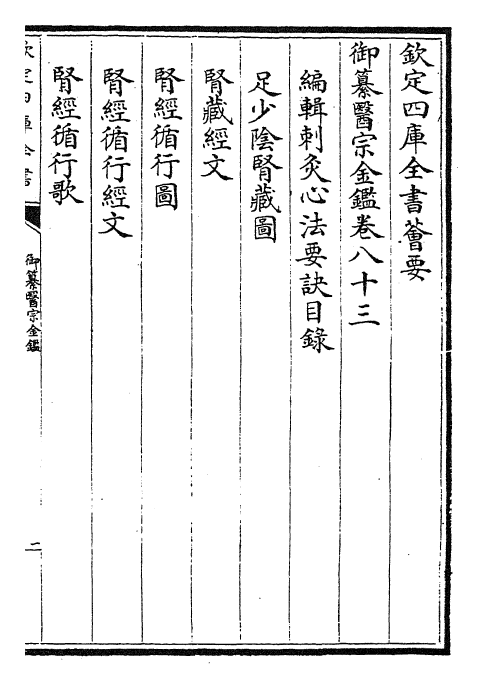 欽定四庫全書薈要
御纂醫宗金鑑卷八十三
編輯刺灸心法要訣目錄
足少陰腎藏圖
腎藏經文
腎經循行圖
腎經循行經文
腎經循行歌
欽定四庫全書
御纂醫宗金鑑
二